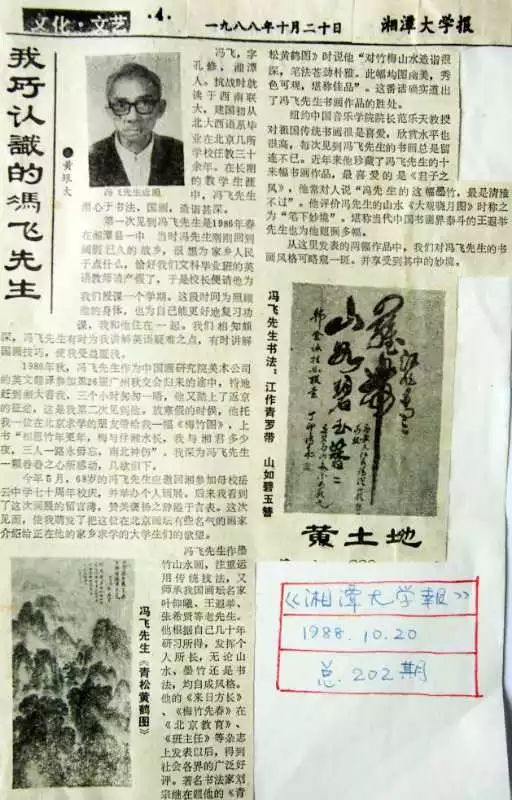 文化·文艺
·4·
一九八八年十月二十日
湘潭大学报
我所认识的馮飞先生
冯飞先生近照
冯飞，字
孔修，湘潭
人。抗战时就
读于西南联
大，建国初从
北大西语系毕
业在北京几所
学校任教三十
余年。在长期
的教学生涯
中，冯飞先生
潜心于书法、国画，造诣甚深。
第一次见到冯飞先生是1986年春
在湘潭县一中，当时冯先生刚刚回到
阔别已久的故乡，很想为家乡人民
干点什么，恰好我们文科毕业班的英
语教师请产假了，于是校长便请他为
我们授课一个学期。这段时间为照顾
他的身体，也为自己能更好地复习功
课，我和他住在一起。我们相知颇
深，冯飞先生有时为我讲解英语疑难之点，有时讲解
国画技巧，使我受益匪浅。
1986年秋，冯飞先生作为中国画研究院美术公司
的英文翻译参加第26届广州秋交会归来的途中，特地
赶到湘大看我，三个小时匆匆一晤，他又踏上了返京
的征途，这是我第二次见到他。放寒假的时候，他托
我一位在北京求学的朋友带给我一幅《梅竹图》，上
书“相思竹年更年，梅与伴湘水长，我与湘君多少
夜，三人一路永毋忘，南北神伤”。我深为冯飞先生
一颗眷眷之心所感动，几欲泪下。
今年5月，68岁的冯飞先生应邀回湘参加母校岳
云中学七十周年校庆，并举办个人画展。后来我看到
了这次画展的留言薄，赞美褒扬之辞溢于言表。这次
见面，使我萌发了把这位在北京画坛有些名气的画家
介绍给正在他的家乡求学的大学生们的欲望。
冯飞先生《青松黄鹤图》
冯飞先生作墨
竹山水画，注重运
用传统技法，又
师承我国画坛名家
叶仰曦、王遐举、
张希贤等老先生。
他根据自己几十年
研习所得，发挥个
人所长，无论山
水、墨竹还是书
法，均自成风格。
他的《来日方长》
、《梅竹先春》在
《北京教育》、
《班主任》等杂志
上发表以后，得到
社会各界的广泛好
评。著名书法家刘
宗继在题他的《青
松黄鹤图》时说他“对竹梅山水造诣很
深，笔法苍劲朴雅。此幅均图南美，秀
色可观，堪称佳品”。这番话确实道出
了冯飞先生书画作品的胜处。
纽约中国音乐学院院长范乐天教授
对祖国传统书画很是喜爱，欣赏水平也
很高，每次见到冯飞先生的书画总是留
连不已。近年来他珍藏了冯飞先生的十
来幅书画作品，最喜爱的是《君子之
风》，他常对人说“冯先生的这幅墨竹，最是清雅
不过”。他评价冯先生的山水《大观晓月图》时称之
为“笔下妙境”。堪称当代中国书画界泰斗的王遐举
先生也为他题画多幅。
从这里发表的两幅作品中，我们对冯飞先生的书
画风格可略窥一斑，并享受到其中的妙境。
冯飞先生书法：江作青罗带　山如碧玉簪
山如碧玉簪
黄土地
《湘潭大学報》
1988.10.20
总.202期